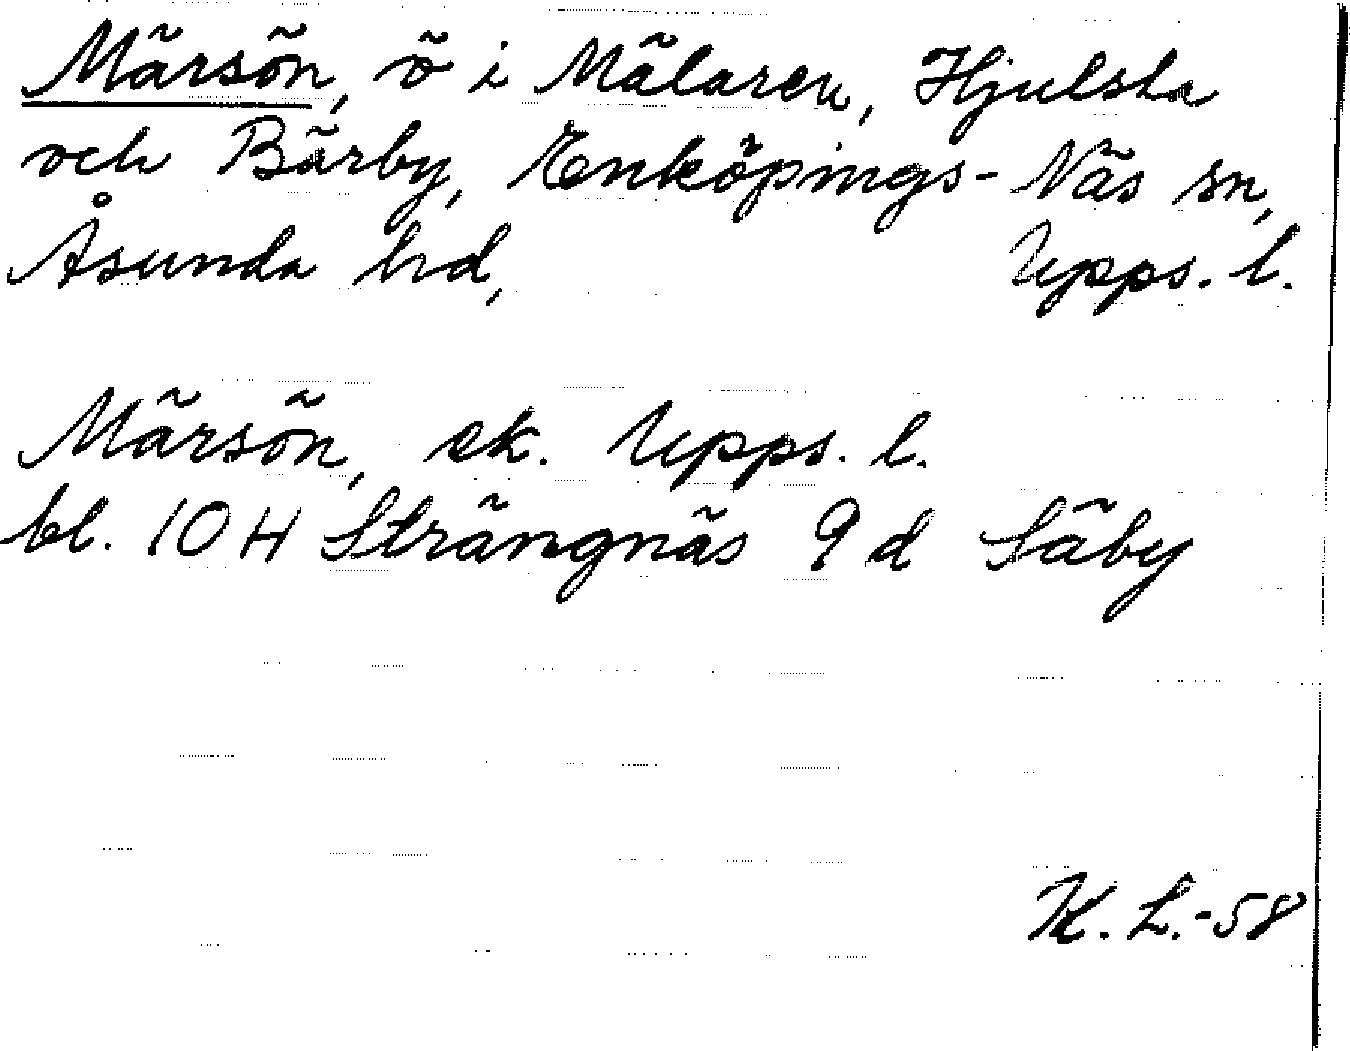 Märsön, ö i Mälaren, Hjulsta
och Bärby, Enköpings-Näs sn,
Åsunda hd, Upps. l.
Märsön, ek. Upps. l.
bl. 10 H Strängnäs 9 d Säby
K. L. -58